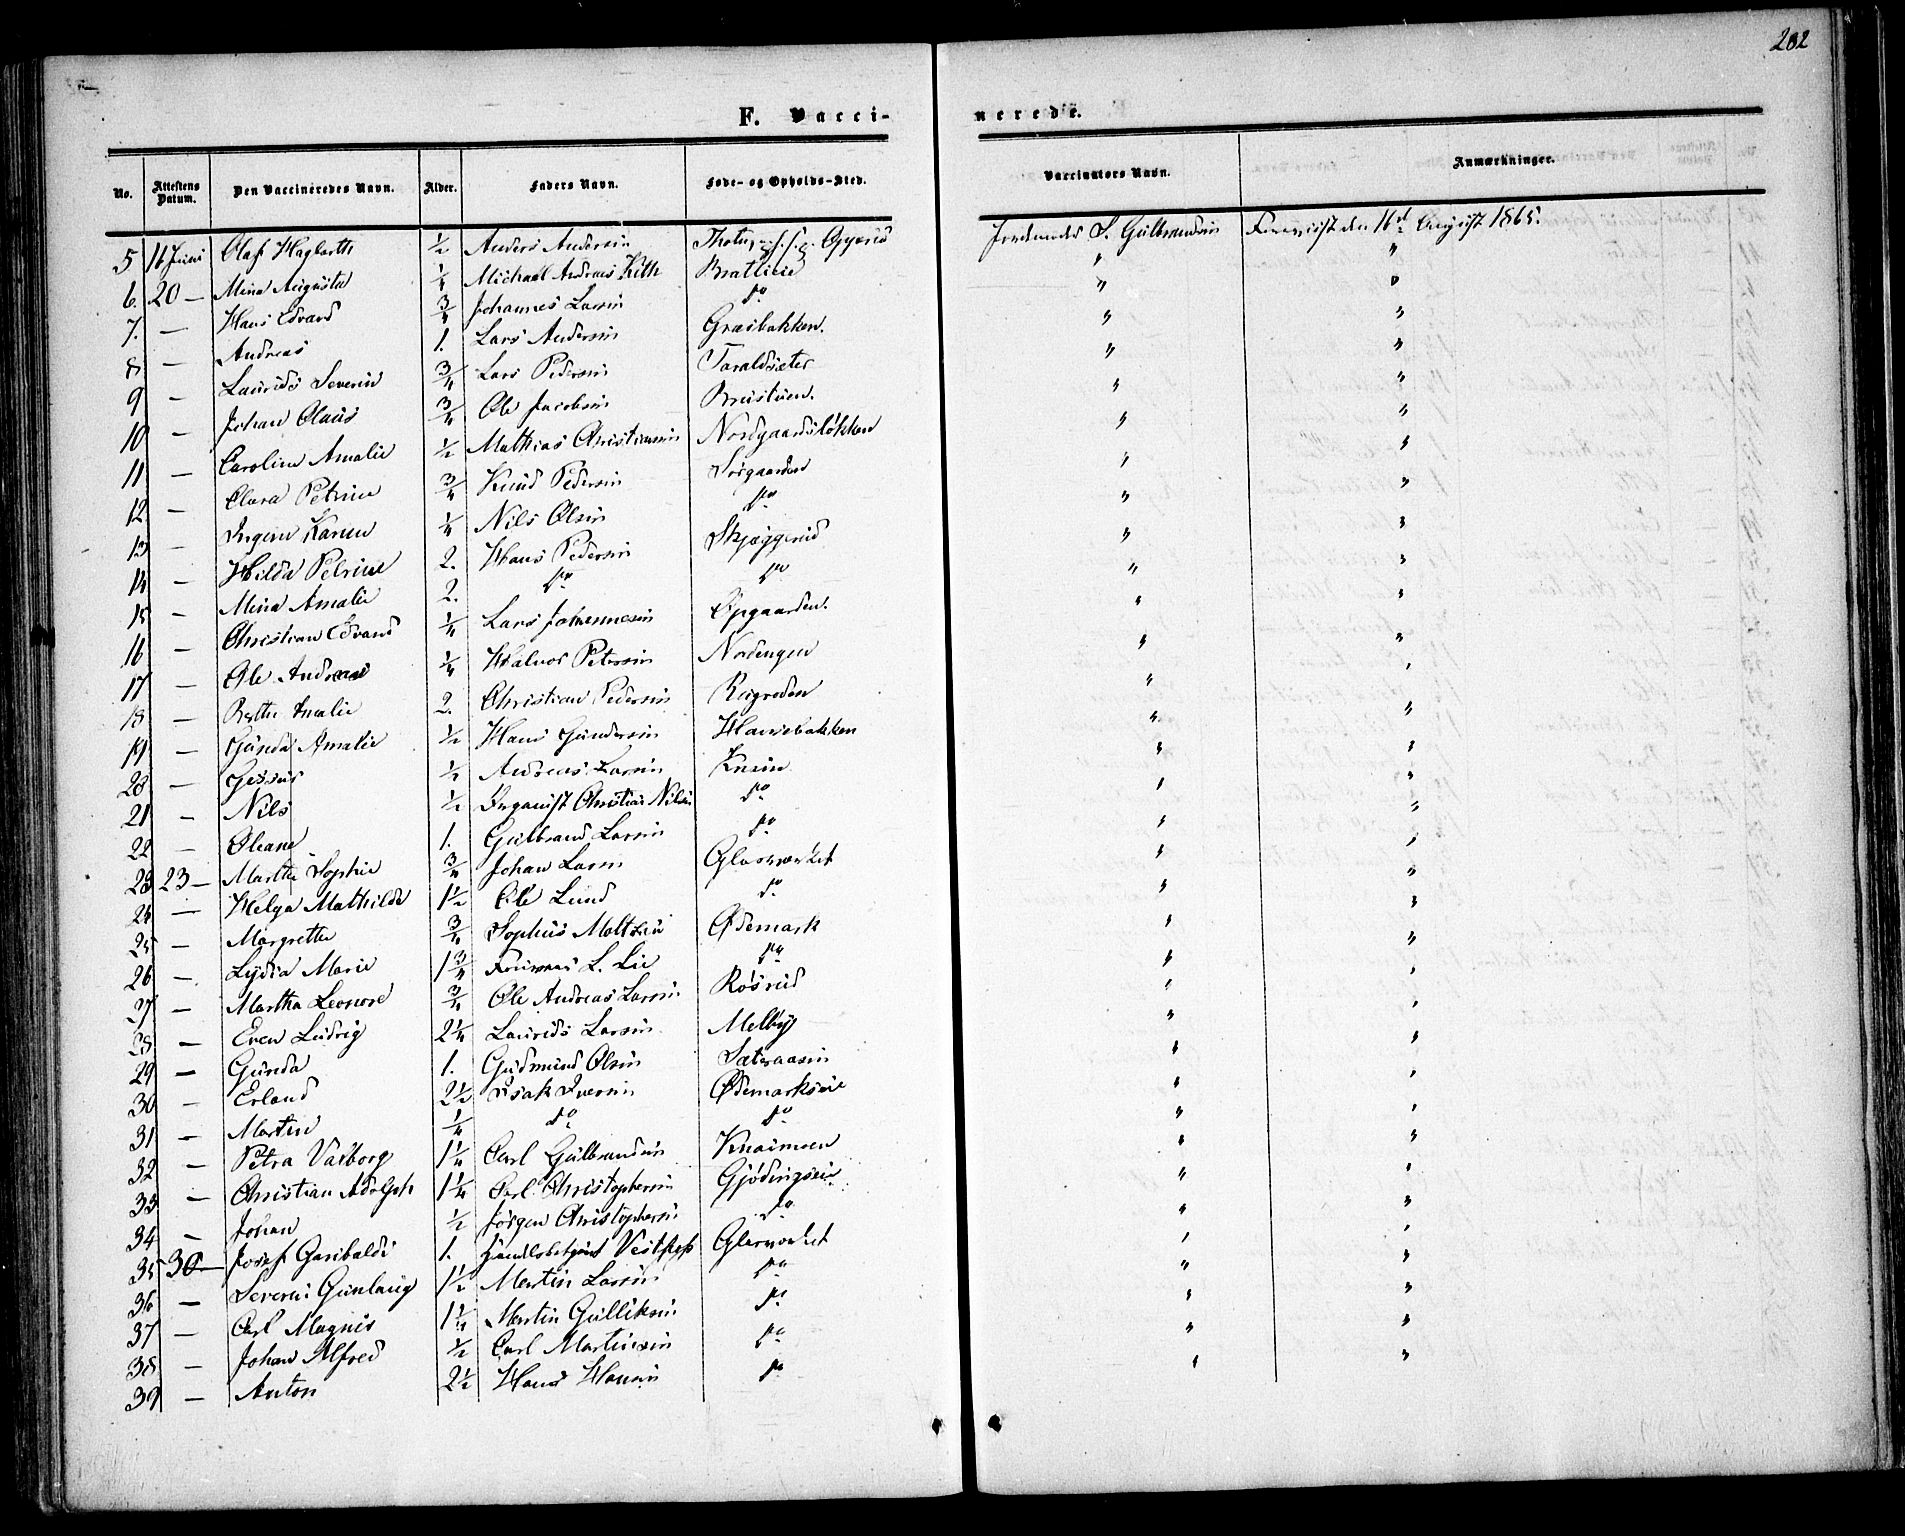 202
F. Vacci-
nerede.
No. Attestens Datum. Den Vaccineredes Navn. Alder. Faders Navn. Føde- og Opholds-Sted. Vaccinators Navn. Anmærkninger.
5 16 Juni Olaf Hagbarth ½ Anders Andersen Thoten, S. Gulbrandsen Foreviist den 16d August 1865.
6. 20 — Mina Augusta ¼ Michael Andreas Bratlieie " "
7. — Hans Edvard ¾ Johannes Larsen do " "
8 — Andreas 1. Lars Andersen Græsbakken. " "
9 — Laurids Severin ¾ Lars Pedersen Taraldsæter " "
10 — Johan Olaus ¾ Ole Jacobsen Brustuen. " "
11 — Caroline Amalie ½ Mathias Christiansen Nordgaardsløkken " "
12 — Clara Petrine ¾ Knud Pedersen Sørgaarden " "
13 — Ingine Karen ¼ Nils Olsen do " "
14 — Hilda Petrine 2. Hans Pedersen Skjæggerud " "
15 — Mina Amalie 2. do do " "
16 — Christian Edvard ¼ Lars Johannesen Opgaarden. " "
17 — Ole Andreas ¼ Halvor Petersen Nordengen " "
18 — Berthe Amalie 2. Christian Pedersen Rugroden " "
19 — Gunda Amalie ½ Hans Gundersen Hansebakken " "
20 — ½ Andreas Larsen Knein " "
21 — Nils ½ Christian Nilsen do " "
22 — Oleane 1. Gulbrand Larsen do " "
23 23 — Marthe Sophie ¾ Johan Larsen Glasværket " "
24 — Helga Mathilde 1½ Ole Lund do " "
25 — Margrethe ¾ Sophus Ødemark " "
26 — Lydia Marie 1¾ L. Lie do " "
27 — Martha Leonore ¾ Ole Andreas Larsen Røsrud " "
28 — Even Ludvig 2¼ Laurids Larsen Melby " "
29 — Gunda 1. Gudmund Olsen Sæteraasen " "
30 — Erland 2½ Isak Iversen Ødemarkseie " "
31 — Martin ¼ do do " "
32 — Petra Valborg 1¼ Carl Gulbrandsen " "
33 — Christian Adolph 1¼ Carl Christophersen Gjødingseie " "
34 — Johan ½ Jørgen Christophersen do " "
35 30 — Josef Garibaldi 1. Glasværket " "
36 — Severin Gunlaug 1½ Martin Larsen do " "
37 — Carl Magnus 1¼ Martin Gulliksen do " "
38 — Johan Alfred ½ Carl Martinsen do " "
39 — Anton 2½ Hans Hansen do " "